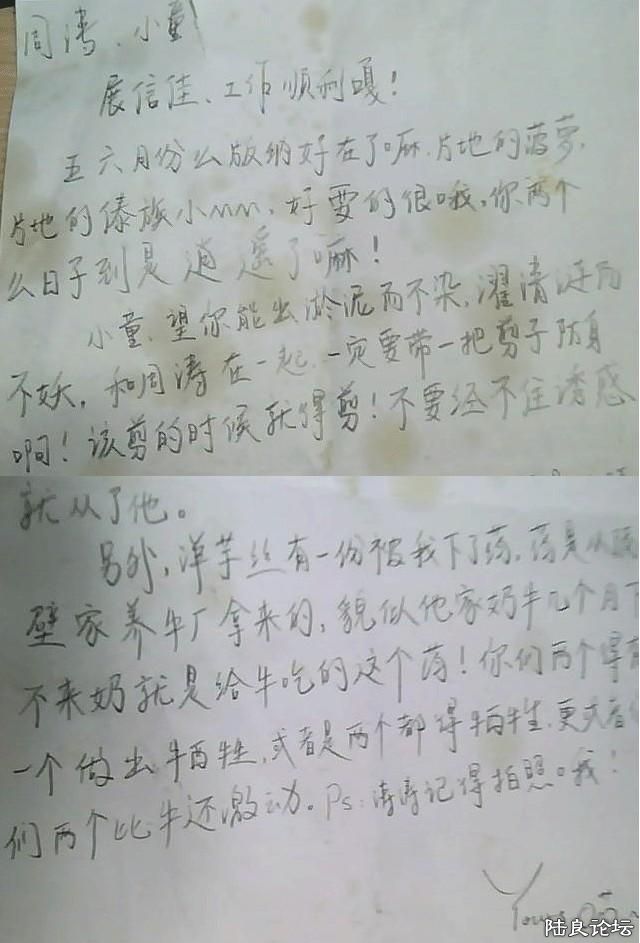 周涛、小童
展信佳、工作顺利嘎！
五六月份么版纳好在了嘛.片地的菠萝.
片地的傣族小mm.好耍的很哦。你两个
么日子到是逍遥了嘛！
小童.望你能出淤泥而不染.濯清涟而
不妖.和周涛在一起.一定要带一把剪子防身
啊！该剪的时候就得剪！不要经不住诱惑
就从了他。
另外,洋芋丝有一份被我下了药.药是从隔
壁家养牛厂拿来的,貌似他家奶牛几个月下
不来奶就是给牛吃的这个药！你们两个得有
一个做出牺牲,或者是两个都得牺牲.更或者你
们两个比牛还激动。Ps:涛涛记得拍照哦!
Yours
陆良论坛